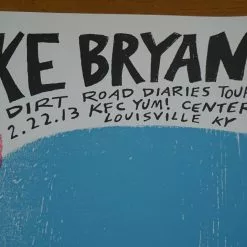 KE BRYAN
DIRT ROAD DIARIES TOUR
2.22.13 KFC YUM! CENTER
LOUISVILLE KY